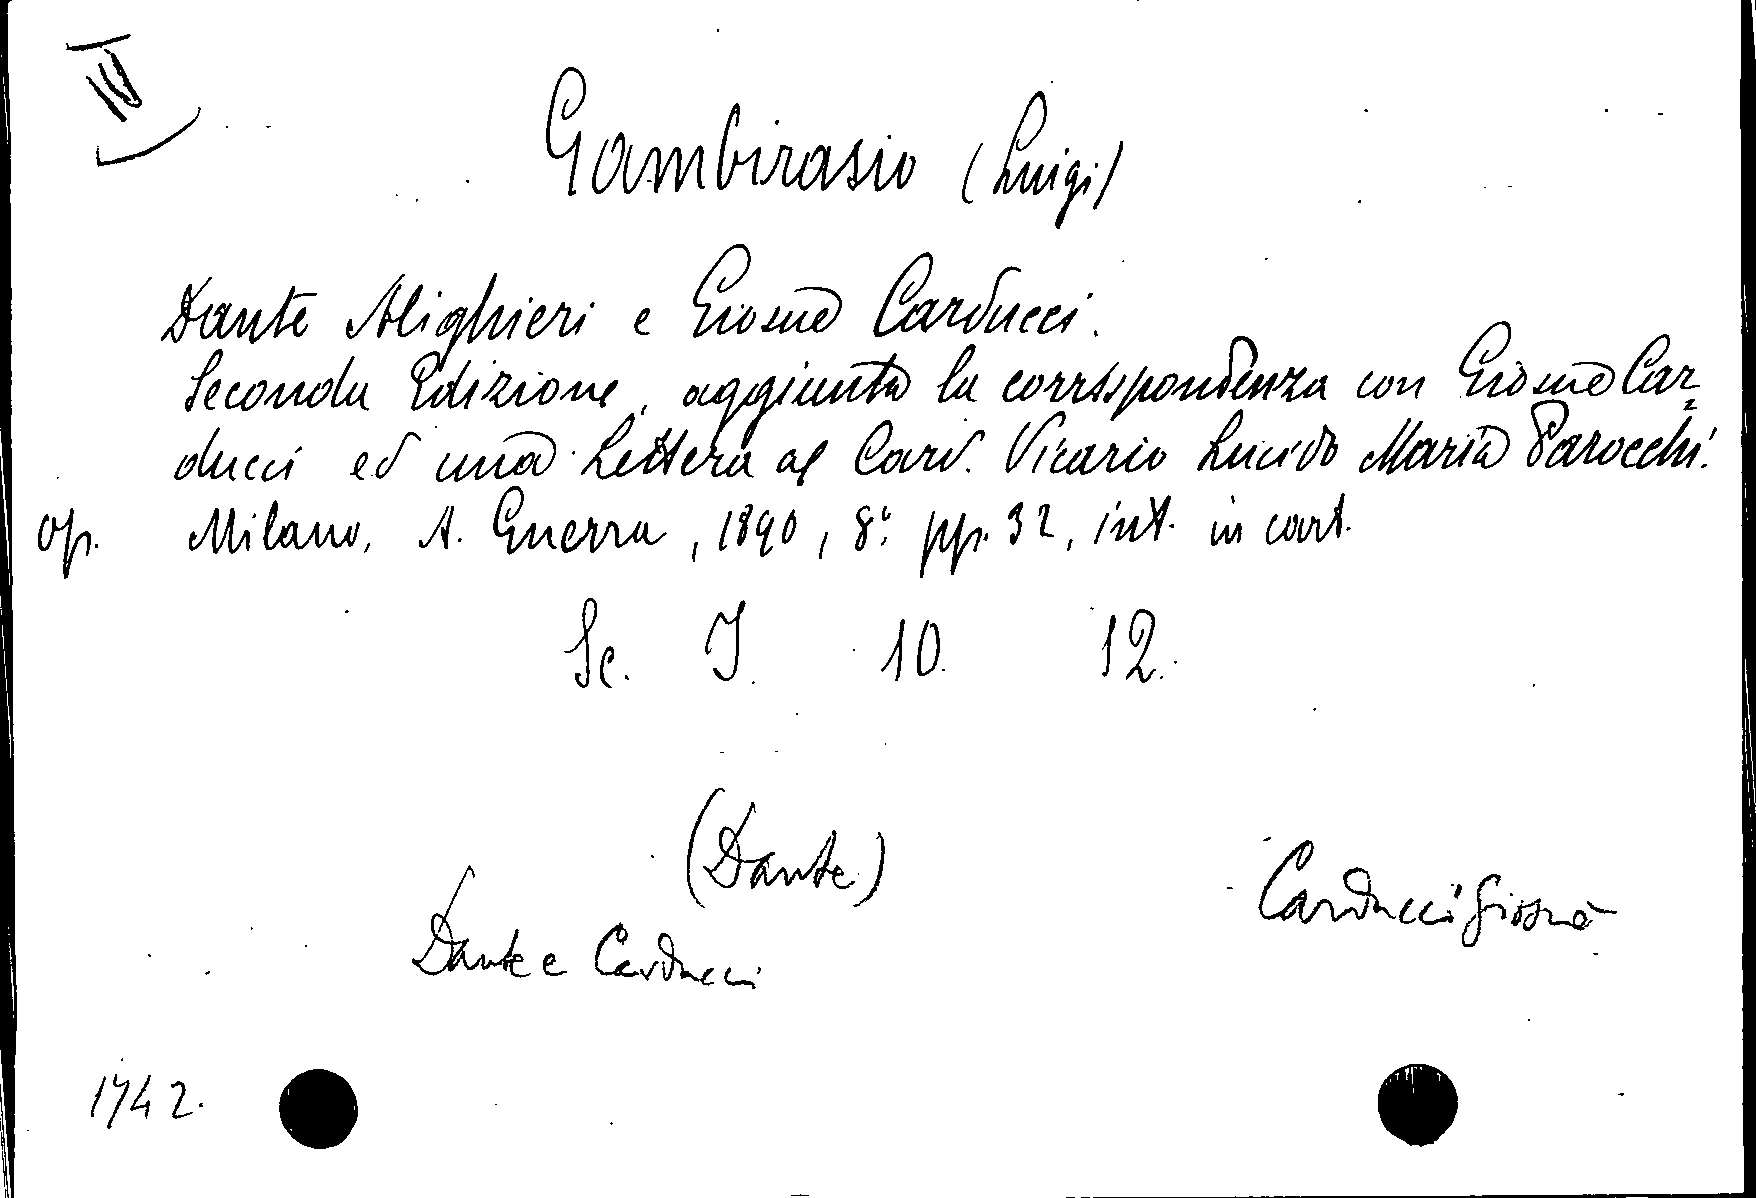 IV
Gambirasio (Luigi)
Dante Alighieri e Giosuè Carducci.
Seconda Edizione, aggiunta la corrispondenza con Giosuè Car=
ducci ed una Lettera al Card. Vicario Lucido Maria Parocchi.
op. Milano, A. Guerra, 1890, 8º pp. 32, int. in cart.
Sc. I. 10. 12.
(Dante)
Carducci Giosuè
Dante e Carducci
1742.